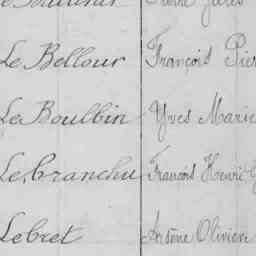 Le Bellour François Pier
Le Boulbin Yves Marie
Le branchu François Henri
Lebret Arsène Olivier